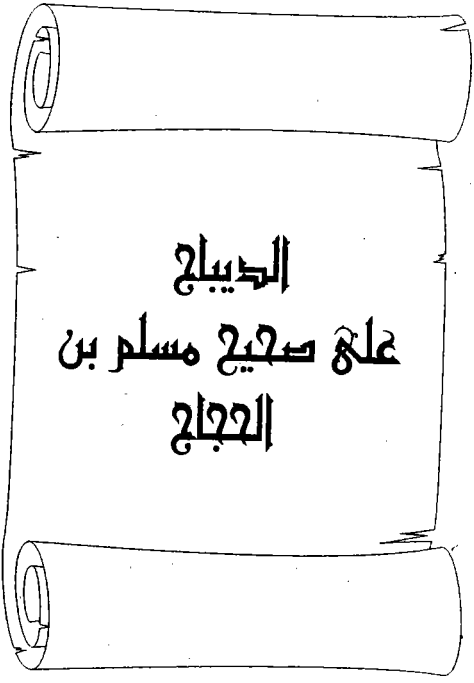 الديباج
على صحيح مسلم بن
الحجاج